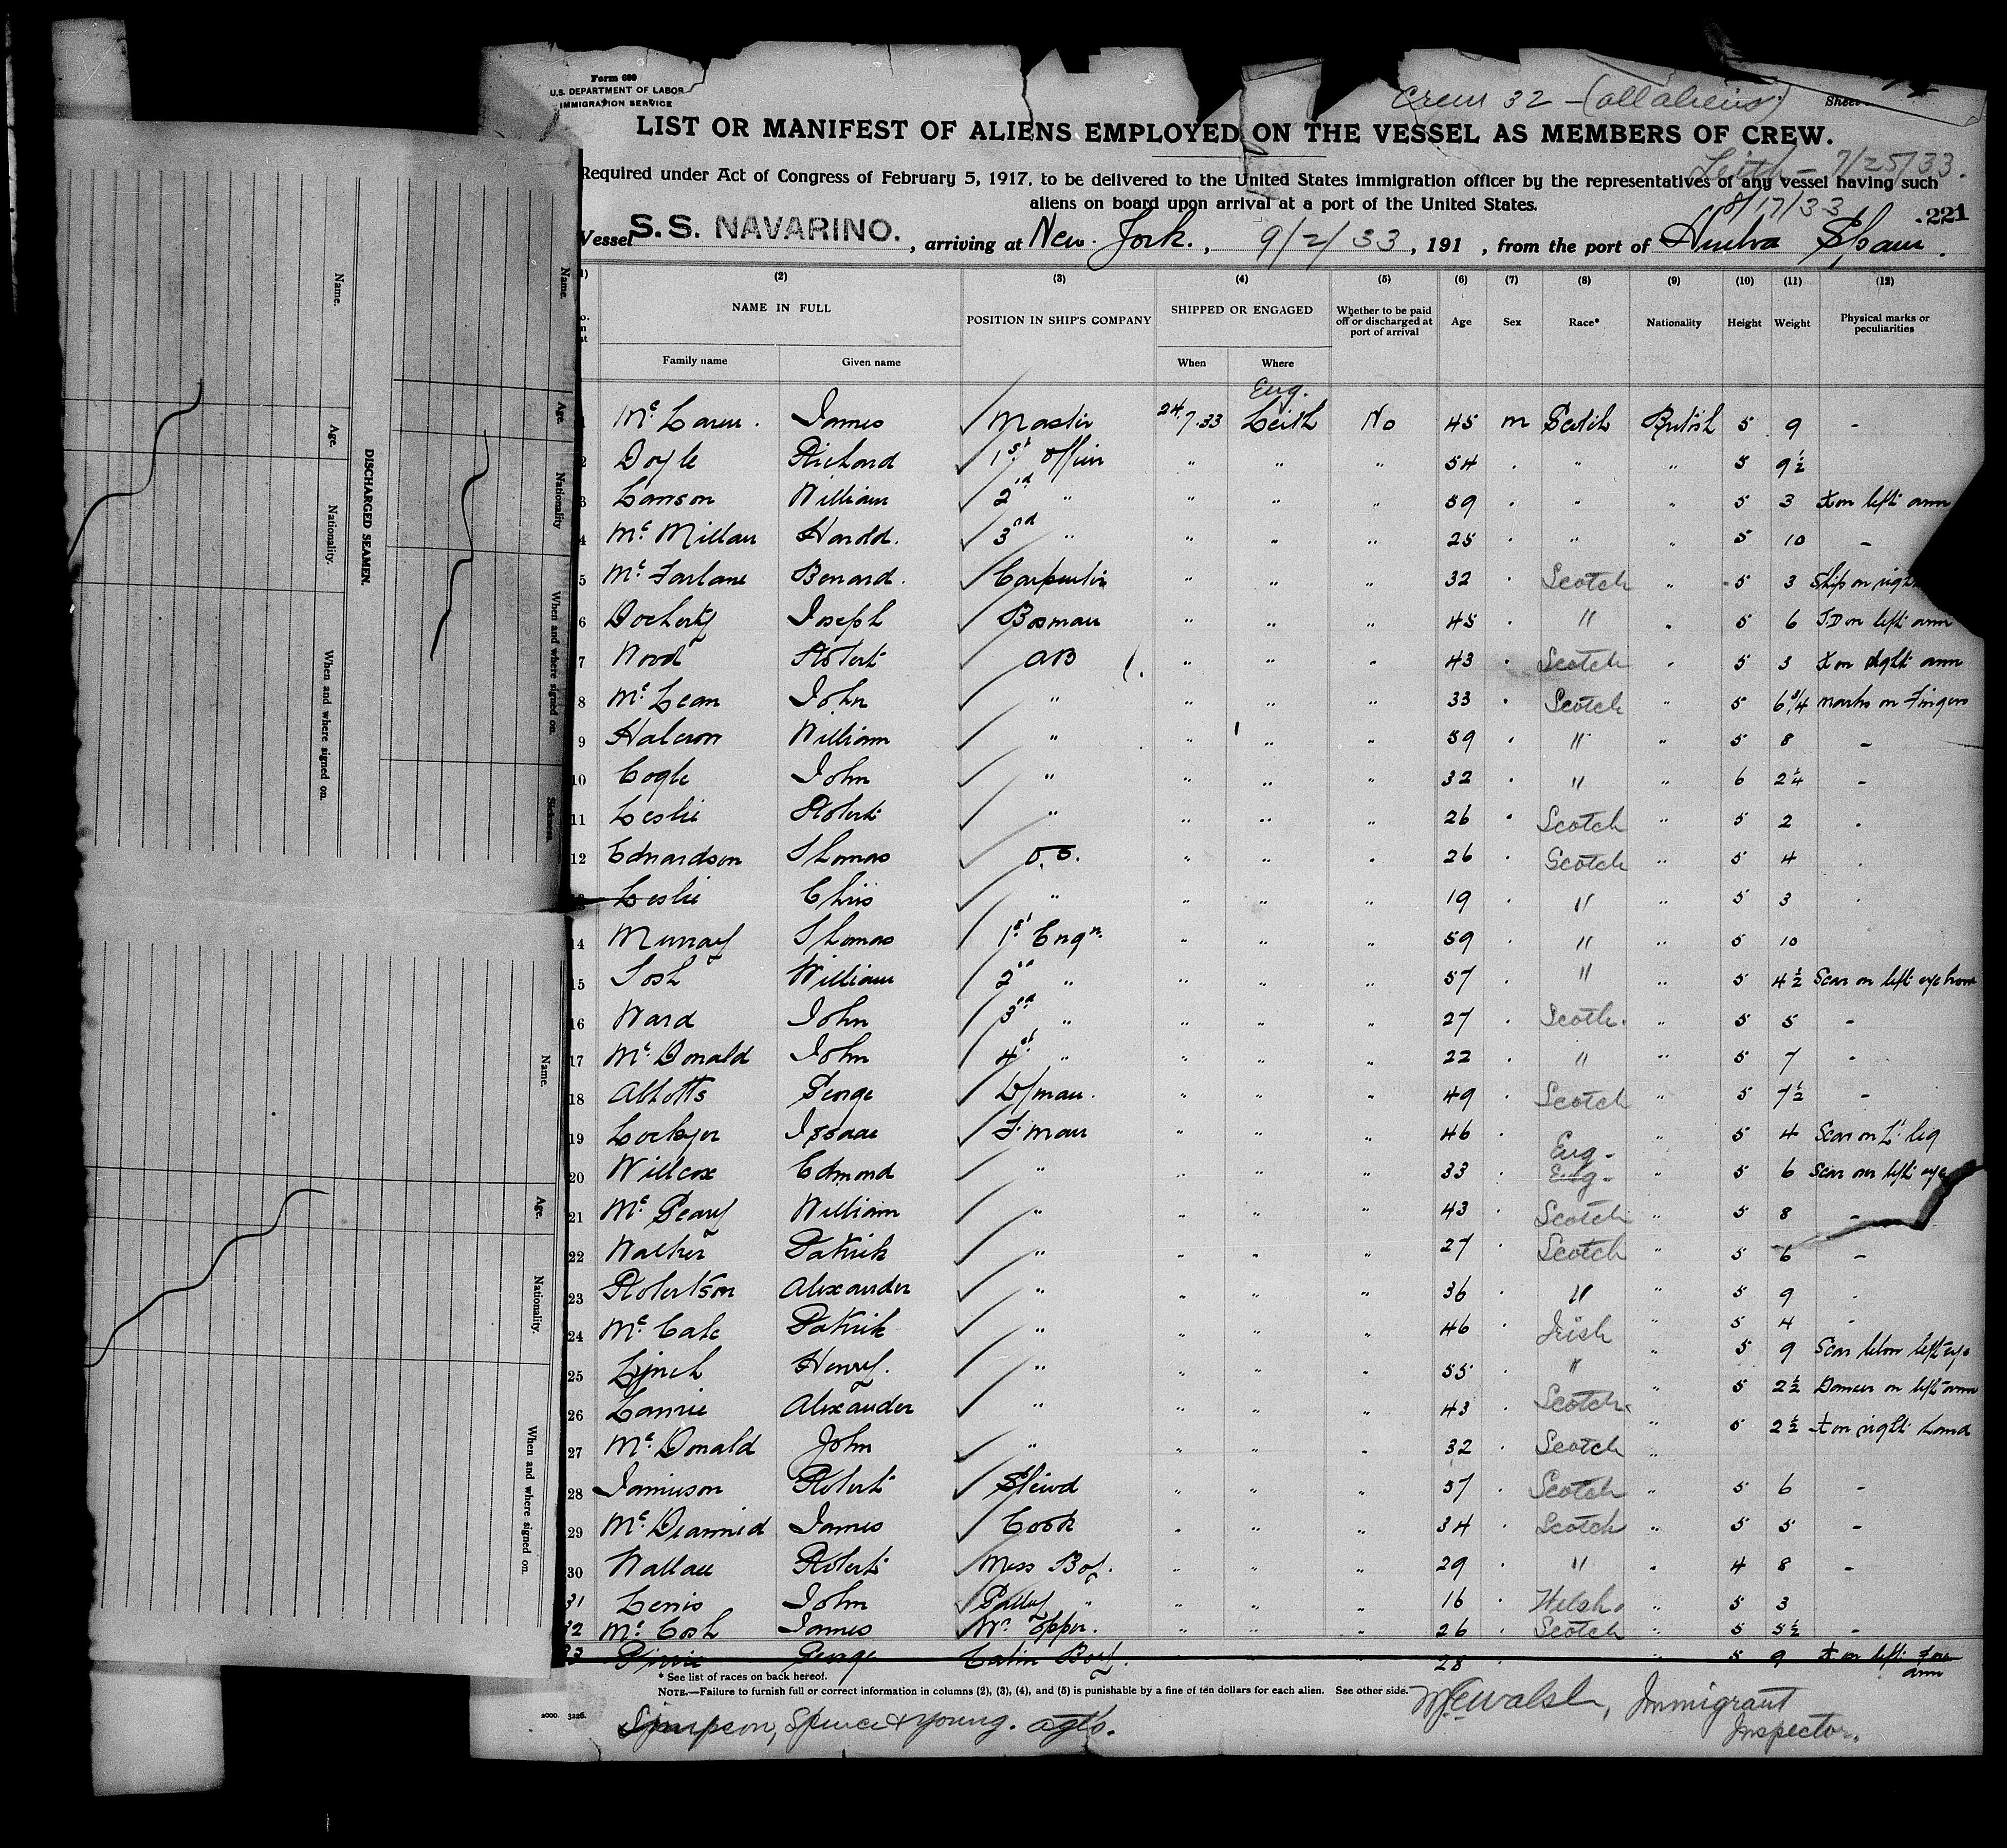 Form 689
U.S. DEPARTMENT OF LABOR
IMMIGRATION SERVICE
Crew 32 - (all aliens)
Sheet
LIST OR MANIFEST OF ALIENS EMPLOYED ON THE VESSEL AS MEMBERS OF CREW.
Leith - 7/25/33.
Required under Act of Congress of February 5, 1917, to be delivered to the United States immigration officer by the representatives of any vessel having such
aliens on board upon arrival at a port of the United States.
8/17/33
221
Vessel S.S. NAVARINO., arriving at New York., 9/2/33, 191 , from the port of Huelva Spain.
(2) (3) (4) (5) (6) (7) (8) (9) (10) (11) (12)
NAME IN FULL POSITION IN SHIP'S COMPANY SHIPPED OR ENGAGED Whether to be paid off or discharged at port of arrival Age Sex Race* Nationality Height Weight Physical marks or peculiarities
Family name Given name When Where
Eng.
1 Mc Laren. James Master 24.7.33 Leith No 45 m Scotch British 5 9 -
2 Doyle Richard 1st Officer " " " 54 . " " 5 9½
3 Lawson William 2nd " " " " 59 . " " 5 3 + on left arm
4 Mc Millan Harold. 3rd " " " " 25 . " " 5 10 -
5 Mc Farlane Benard. Carpenter " " " 32 . Scotch " 5 3 Ship on right
6 Docherty Joseph Bosman " " " 45 . " " 5 6 J.D on left arm
7 Wood Robert AB " " " 43 . Scotch " 5 3 + on right arm
8 Mc Lean John " " " " 33 . Scotch " 5 6¾ marks on Fingers
9 Halcron William " " " " 59 . " " 5 8 -
10 Cogle John " " " " 32 . " " 6 2¼ -
11 Leslie Robert " " " " 26 . Scotch " 5 2 .
12 Edwardson Thomas O.S. " " " 26 . Scotch " 5 4 .
13 Leslie Chris " " " " 19 . " " 5 3 .
14 Murray Thomas 1st Engn. " " " 59 . " " 5 10
15 Tosh William 2nd " " " " 57 . " " 5 4½ Scar on left eye brow
16 Ward John 3rd " " " " 27 . Scoth. " 5 5 -
17 Mc Donald John 4th " " " " 22 . " " 5 7 -
18 Abbotts George D/man. " " " 49 . Scotch " 5 7½ -
19 Lockyer Issaac F.man " " " 46 . Eng. " 5 4 Scar on L. leg
20 Willcox Edmond " " " " 33 . Eng. " 5 6 Scar over left eye
21 Mc Geary William " " " " 43 . Scotch " 5 8 -
22 Walker Patrick " " " " 27 . Scotch " 5 6 -
23 Robertson Alexander " " " " 36 . " " 5 9 .
24 Mc Cabe Patrick " " " " 46 . Irish " 5 4 -
25 Lynch Henry. " " " " 55 . " " 5 9 Scar below left eye
26 Lawrie Alexander " " " " 43 . Scotch. " 5 2½ Dancer on left arm
27 Mc Donald John " " " " 32 . Scotch " 5 2½ + on right hand
28 Jamieson Robert Stewd " " " 57 . Scotch " 5 6 -
29 Mc Diarmid James Cook " " " 34 . Scotch " 5 5 -
30 Wallace Robert Mess Boy. " " " 29 . " " 4 8 -
31 Lewis John Galley " " " " 16 . Welsh. " 5 3
32 Mc Cosh James Wr. Opper. " " " 26 . Scotch " 5 5½ -
33 Pirrie George Cabin Boy. 28 " 5 9 + on left fore arm
* See list of races on back hereof.
NOTE.—Failure to furnish full or correct information in columns (2), (3), (4), and (5) is punishable by a fine of ten dollars for each alien. See other side.
Walsh, Immigrant
Inspector.
Simpson, Spence & Young. agts.
DISCHARGED SEAMEN.
Name. Age. Nationality. When and where signed on.
Name. Age. Nationality When and where signed on. Sickness.
Name. Age. Nationality. When and where signed on.